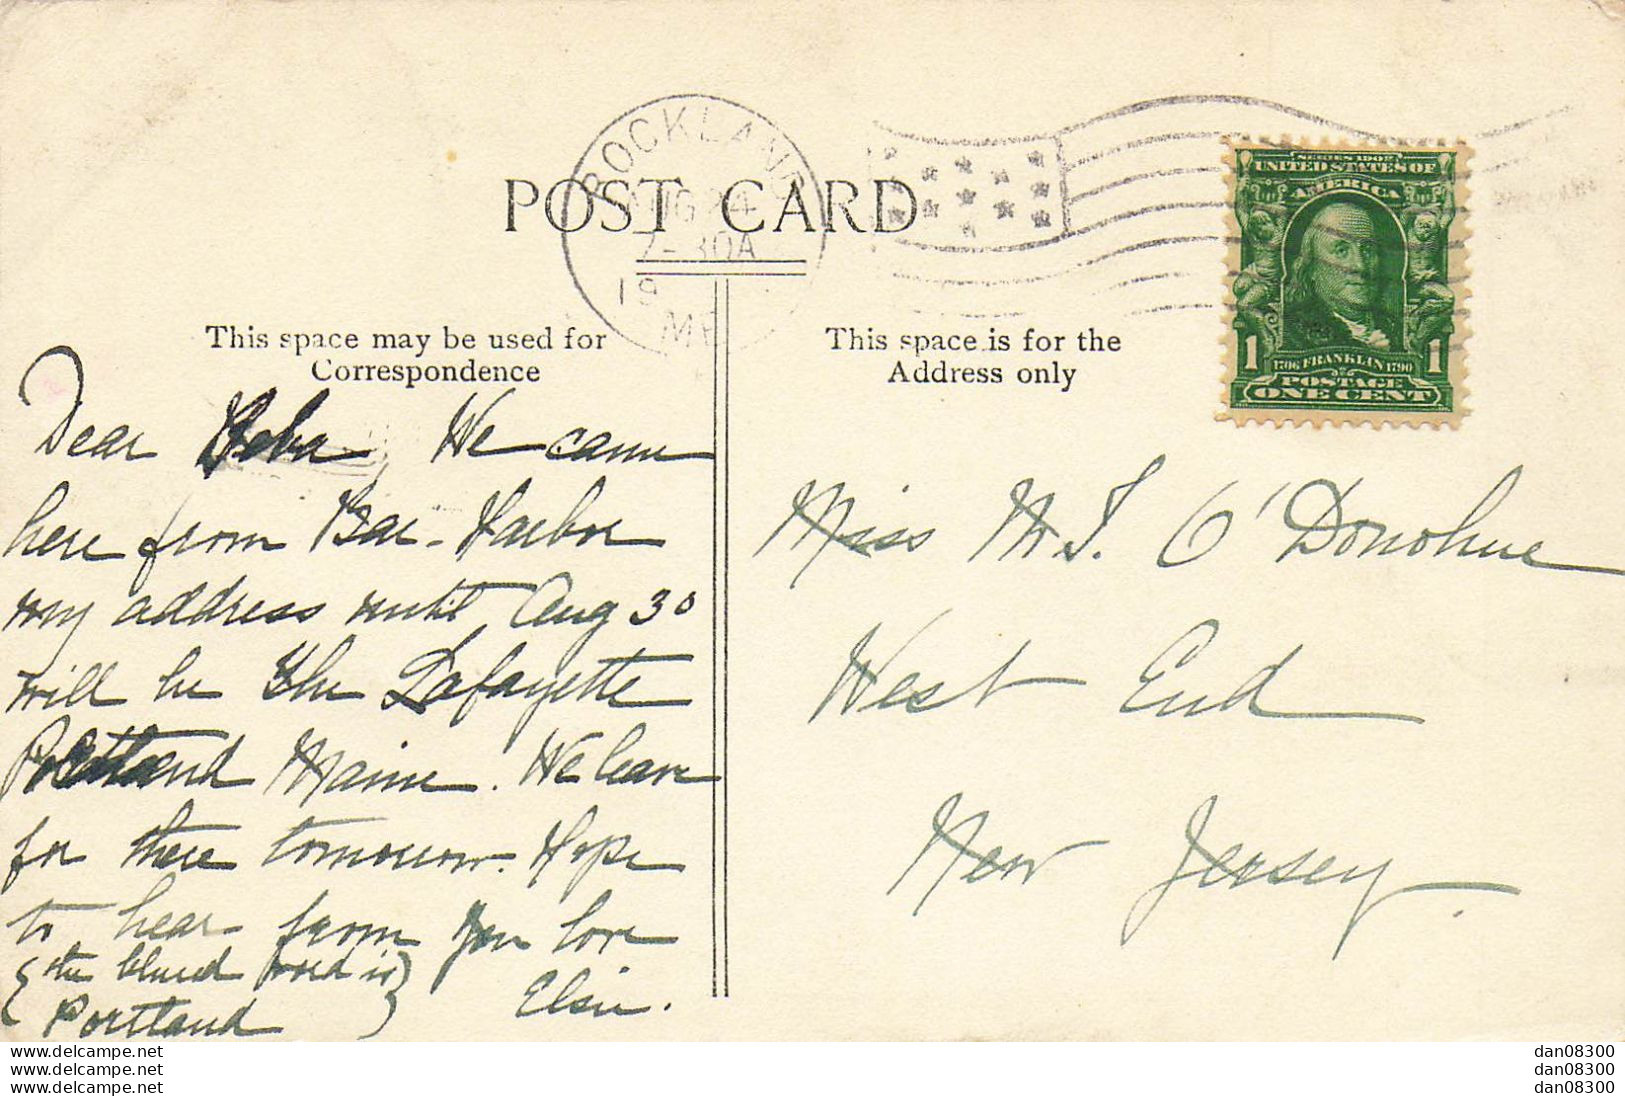 POST CARD
ROCKLAND
AUG 24
7-30A
19
ME
SERIES 1902
UNITED STATES OF
AMERICA
1 1706 FRANKLIN 1790 1
POSTAGE
ONE CENT
This space may be used for
Correspondence
Dear We came
here from Bar-Harbor
my address until Aug 30
will be The Lafayette
Portland Maine. We leave
for there tomorrow. Hope
to hear from you love
Elsie.
{ the blured word is
Portland }
This space is for the
Address only
Miss M. J. O'Donohue
West End
New Jersey.
www.delcampe.net
www.delcampe.net
www.delcampe.net
dan08300
dan08300
dan08300